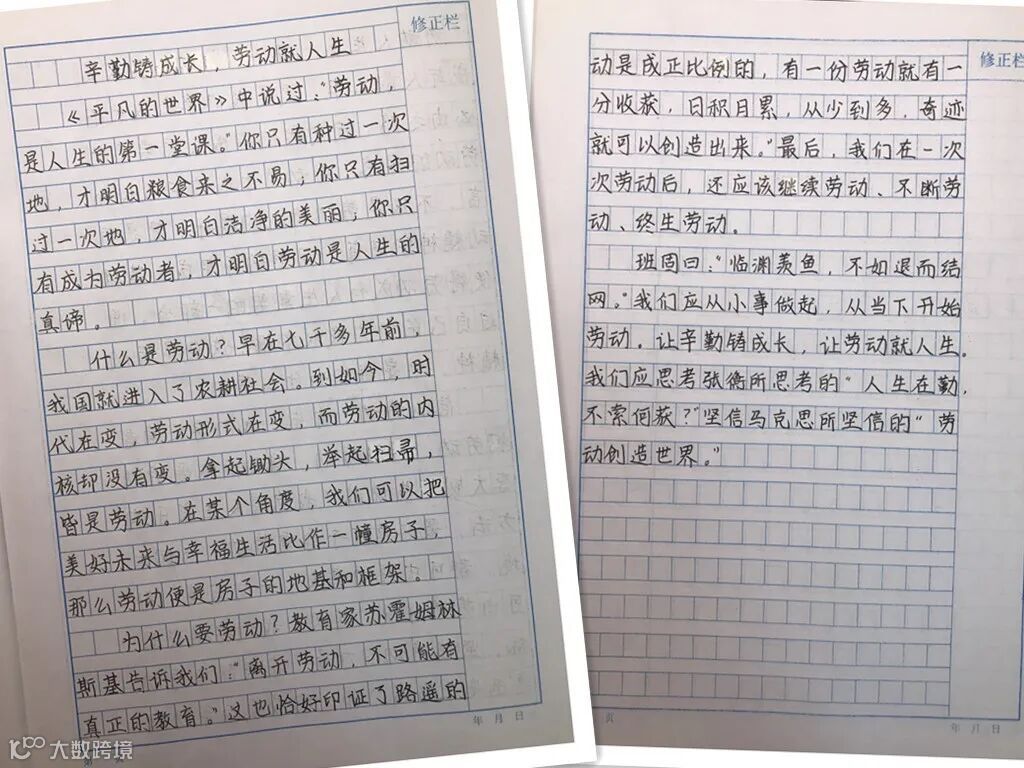 修正栏
辛勤铸成长，劳动就人生
《平凡的世界》中说过："劳动，
是人生的第一堂课。"你只有种过一次
地，才明白粮食来之不易；你只有扫
过一次地，才明白洁净的美丽；你只
有成为劳动者，才明白劳动是人生的
真谛。
什么是劳动？早在七千多年前，
我国就进入了农耕社会。到如今，时
代在变，劳动形式在变，而劳动的内
核却没有变。拿起锄头，举起扫帚，
皆是劳动。在某个角度，我们可以把
美好未来与幸福生活比作一幢房子，
那么劳动便是房子的地基和框架。
为什么要劳动？教育家苏霍姆林
斯基告诉我们："离开劳动，不可能有
真正的教育。"这也恰好印证了路遥的
年 月 日
大数跨境
修正栏
动是成正比例的，有一份劳动就有一
分收获，日积月累，从少到多，奇迹
就可以创造出来。"最后，我们在一次
次劳动后，还应该继续劳动、不断劳
动、终生劳动。
班固曰："临渊羡鱼，不如退而结
网。"我们应从小事做起，从当下开始
劳动。让辛勤铸成长，让劳动就人生。
我们应思考张衡所思考的"人生在勤，
不索何获？"坚信马克思所坚信的"劳
动创造世界。"
页
年 月 日